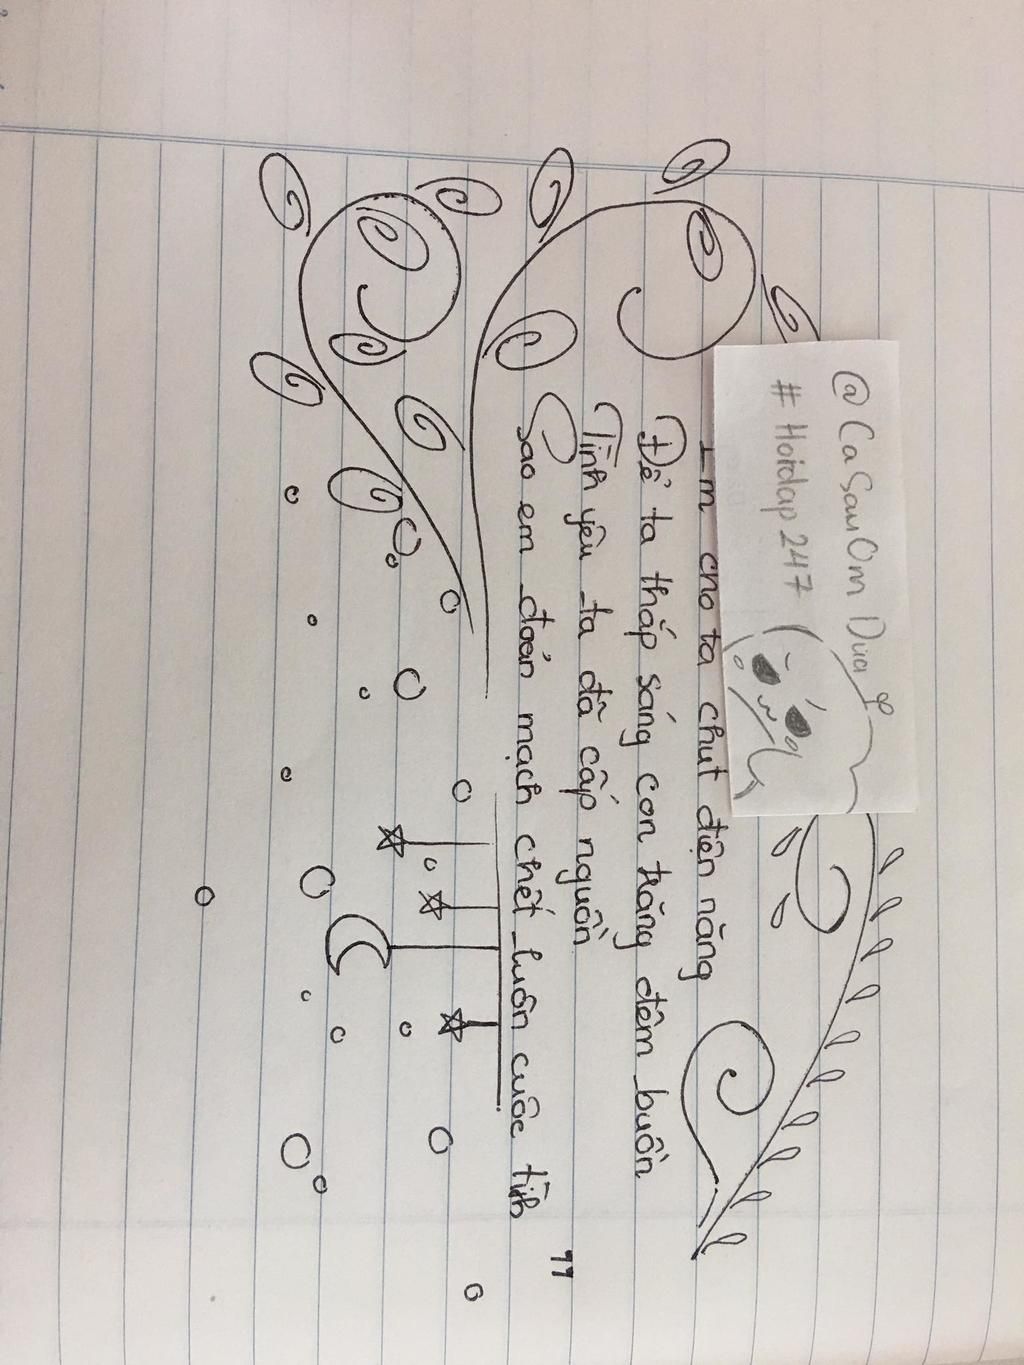 @CaSauOm Dua
# Hoidap 247
Em cho ta chút điện năng
Để ta thắp sáng con trăng đêm buồn
Tình yêu ta đã cấp nguồn
Sao em đoản mạch chết luôn cuộc tình
"